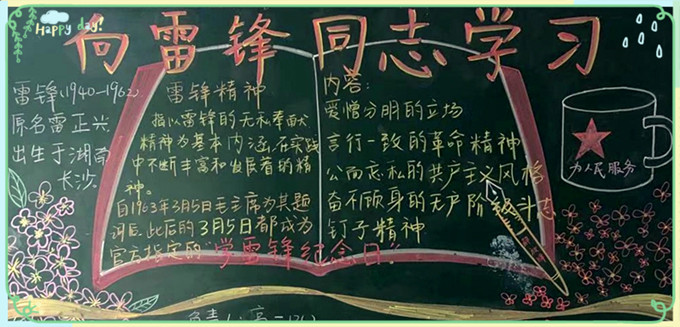 Happy day!
向雷锋同志学习
雷锋(1940-1962)
原名雷正兴
出生于湖南
长沙
雷锋精神
指以雷锋的无私奉献
精神为基本内涵,在实践
中不断丰富和发展着的精
神。
自1963年3月5日毛主席为其题
词后,此后的3月5日都成为
官方指定的"学雷锋纪念日"。
内容:
爱憎分明的立场
言行一致的革命精神
公而忘私的共产主义风格
奋不顾身的无产阶级斗志
钉子精神
为人民服务
负责人:高一